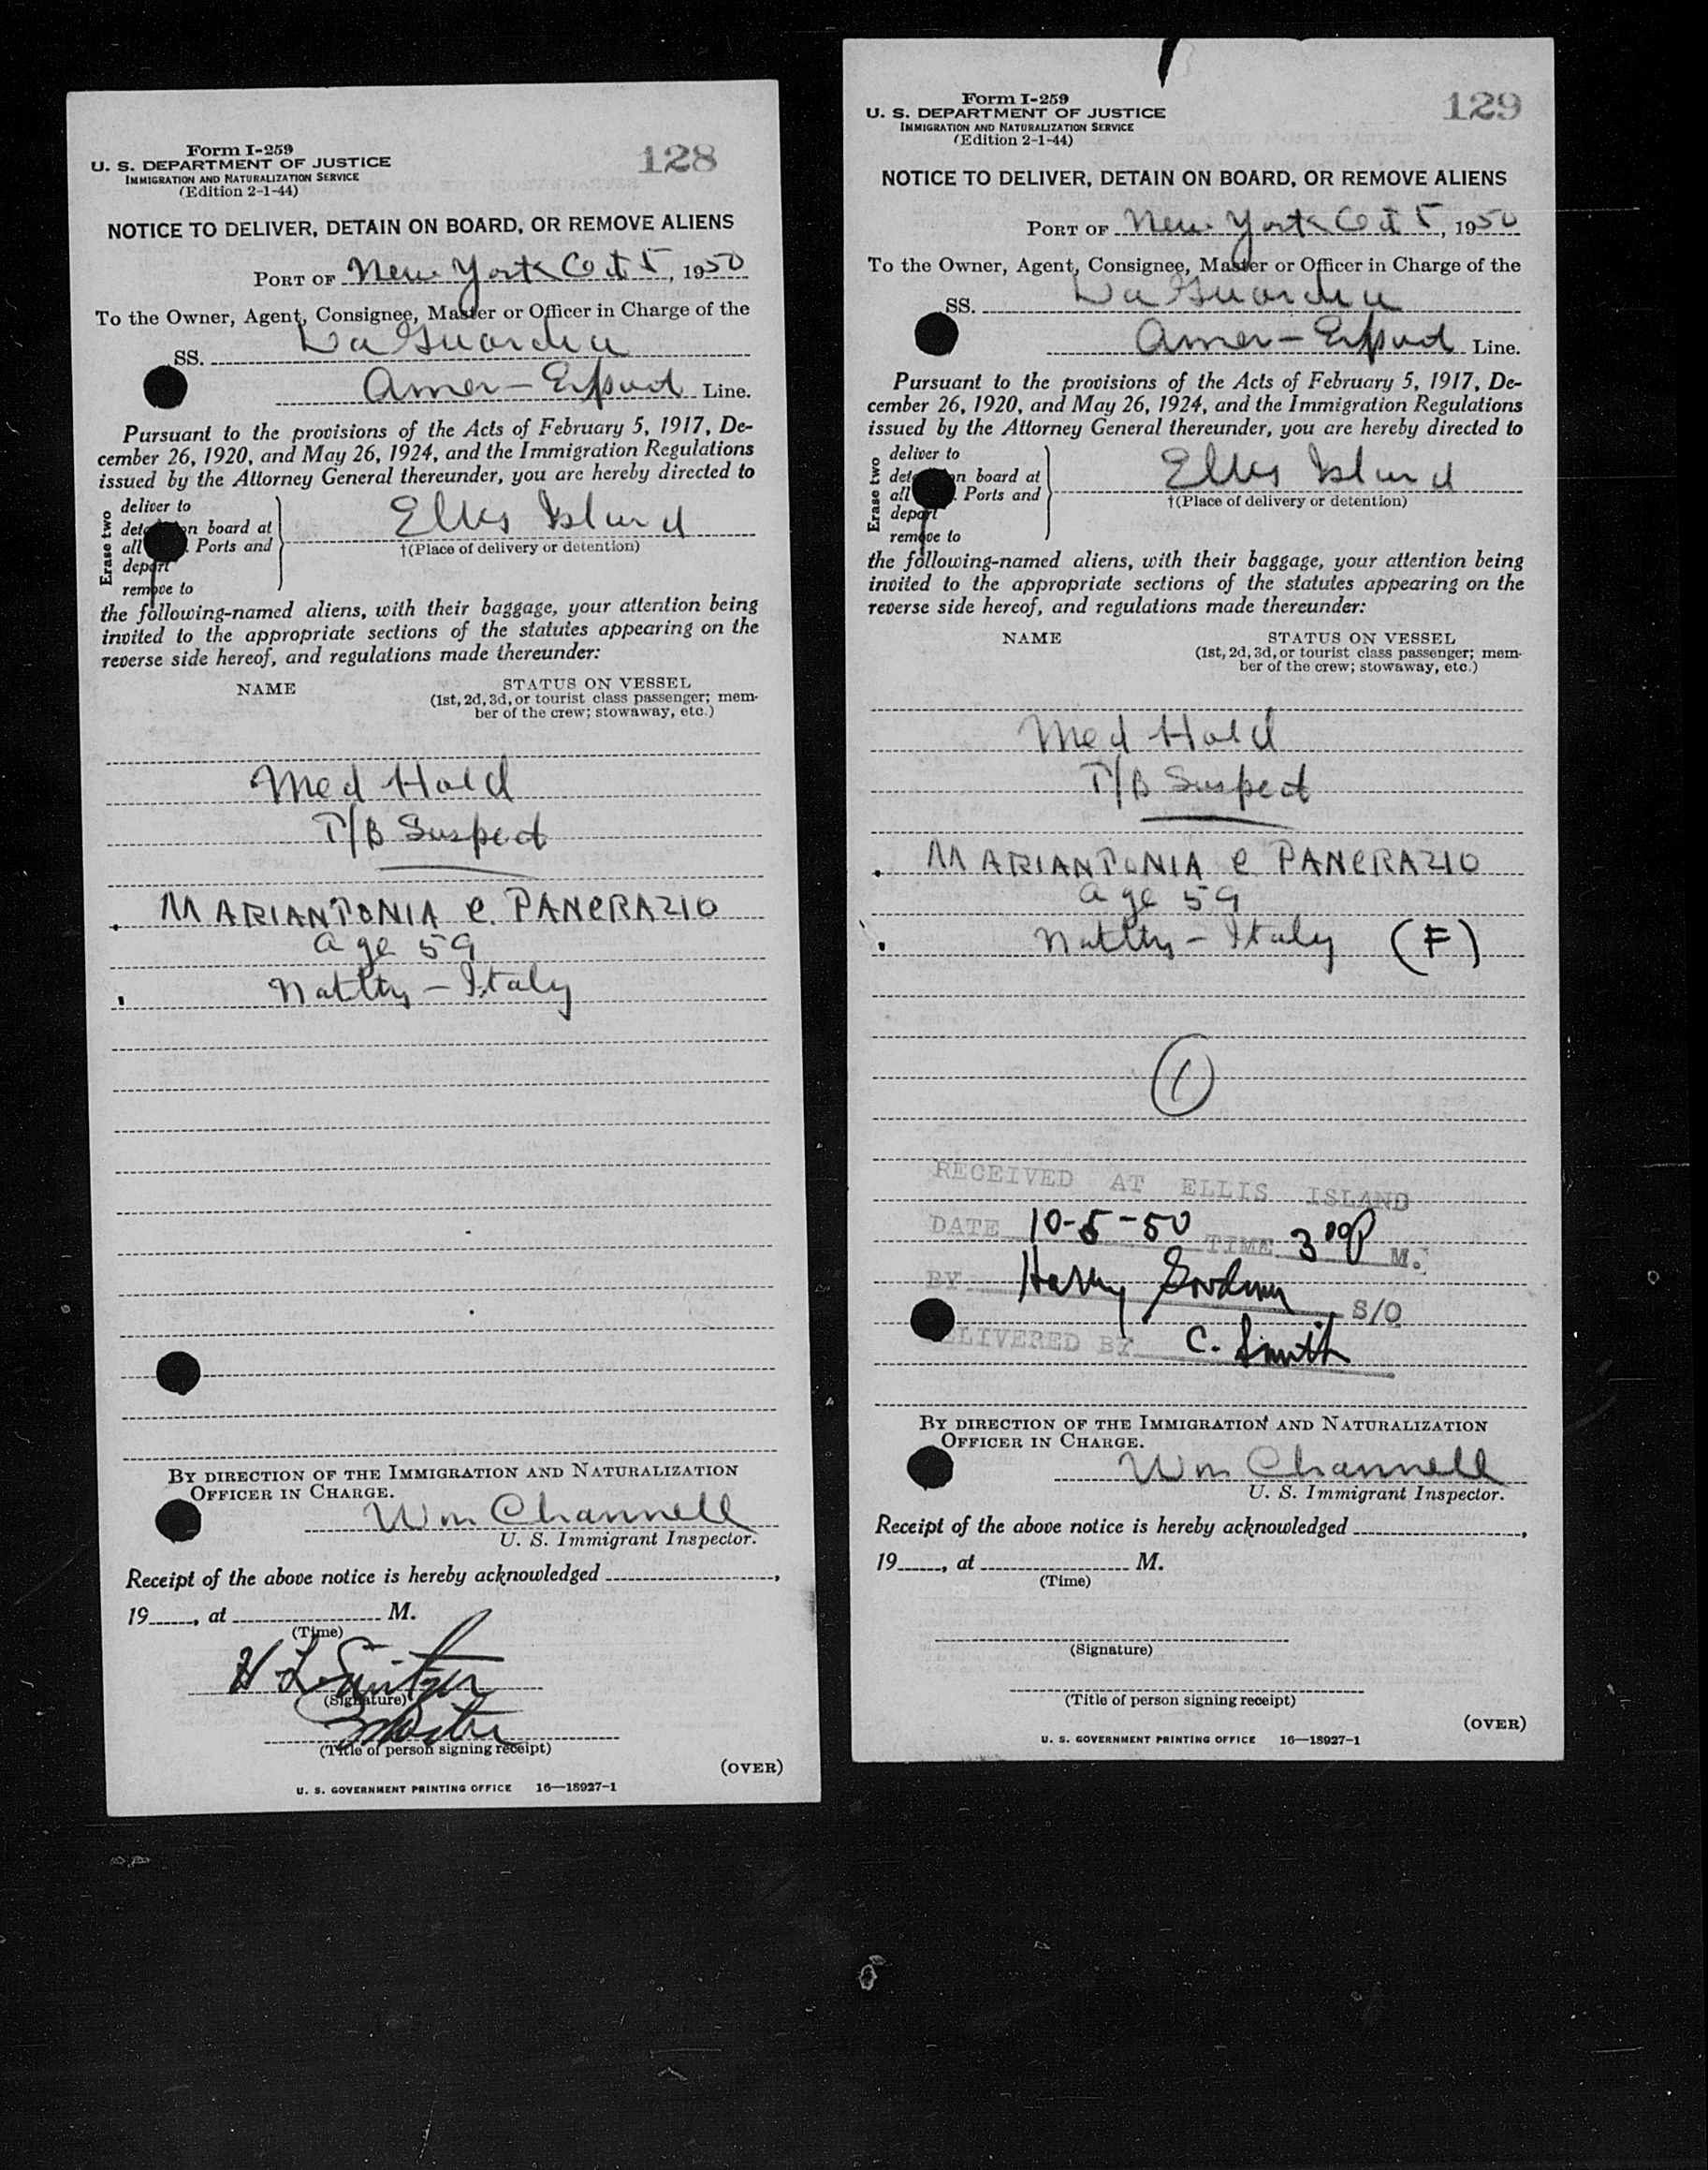 Form I-259
U. S. DEPARTMENT OF JUSTICE
IMMIGRATION AND NATURALIZATION SERVICE
(Edition 2-1-44)
128
NOTICE TO DELIVER, DETAIN ON BOARD, OR REMOVE ALIENS
PORT OF New York Oct 5, 1950
To the Owner, Agent, Consignee, Master or Officer in Charge of the
SS. La Guardia
Amer-Export Line.
Pursuant to the provisions of the Acts of February 5, 1917, De-
cember 26, 1920, and May 26, 1924, and the Immigration Regulations
issued by the Attorney General thereunder, you are hereby directed to
Erase two
deliver to
board at
all Ports and
depart
remove to
Ellis Island
†(Place of delivery or detention)
the following-named aliens, with their baggage, your attention being
invited to the appropriate sections of the statutes appearing on the
reverse side hereof, and regulations made thereunder:
NAME
STATUS ON VESSEL
(1st, 2d, 3d, or tourist class passenger; mem-
ber of the crew; stowaway, etc.)
Med Hold
T/B Suspect
MARIANTONIA C. PANCRAZIO
age 59
Natlty - Italy
BY DIRECTION OF THE IMMIGRATION AND NATURALIZATION
OFFICER IN CHARGE.
Wm Channell
U. S. Immigrant Inspector.
Receipt of the above notice is hereby acknowledged ,
19 , at M.
(Time)
(Signature)
Master
(Title of person signing receipt)
(OVER)
U. S. GOVERNMENT PRINTING OFFICE 16—18927-1
Form I-259
U. S. DEPARTMENT OF JUSTICE
IMMIGRATION AND NATURALIZATION SERVICE
(Edition 2-1-44)
129
NOTICE TO DELIVER, DETAIN ON BOARD, OR REMOVE ALIENS
PORT OF New York Oct 5, 1950
To the Owner, Agent, Consignee, Master or Officer in Charge of the
SS. La Guardia
Amer-Export Line.
Pursuant to the provisions of the Acts of February 5, 1917, De-
cember 26, 1920, and May 26, 1924, and the Immigration Regulations
issued by the Attorney General thereunder, you are hereby directed to
Erase two
deliver to
board at
all Ports and
depart
remove to
Ellis Island
†(Place of delivery or detention)
the following-named aliens, with their baggage, your attention being
invited to the appropriate sections of the statutes appearing on the
reverse side hereof, and regulations made thereunder:
NAME
STATUS ON VESSEL
(1st, 2d, 3d, or tourist class passenger; mem-
ber of the crew; stowaway, etc.)
Med Hold
T/B Suspect
MARIANTONIA C PANCRAZIO
age 59
Natlty - Italy (F)
1
RECEIVED AT ELLIS ISLAND
DATE 10-5-50 TIME 3 00 P M.
BY Harry Goodman S/O
DELIVERED BY C. Smith
BY DIRECTION OF THE IMMIGRATION AND NATURALIZATION
OFFICER IN CHARGE.
Wm Channell
U. S. Immigrant Inspector.
Receipt of the above notice is hereby acknowledged ,
19 , at M.
(Time)
(Signature)
(Title of person signing receipt)
(OVER)
U. S. GOVERNMENT PRINTING OFFICE 16—18927-1